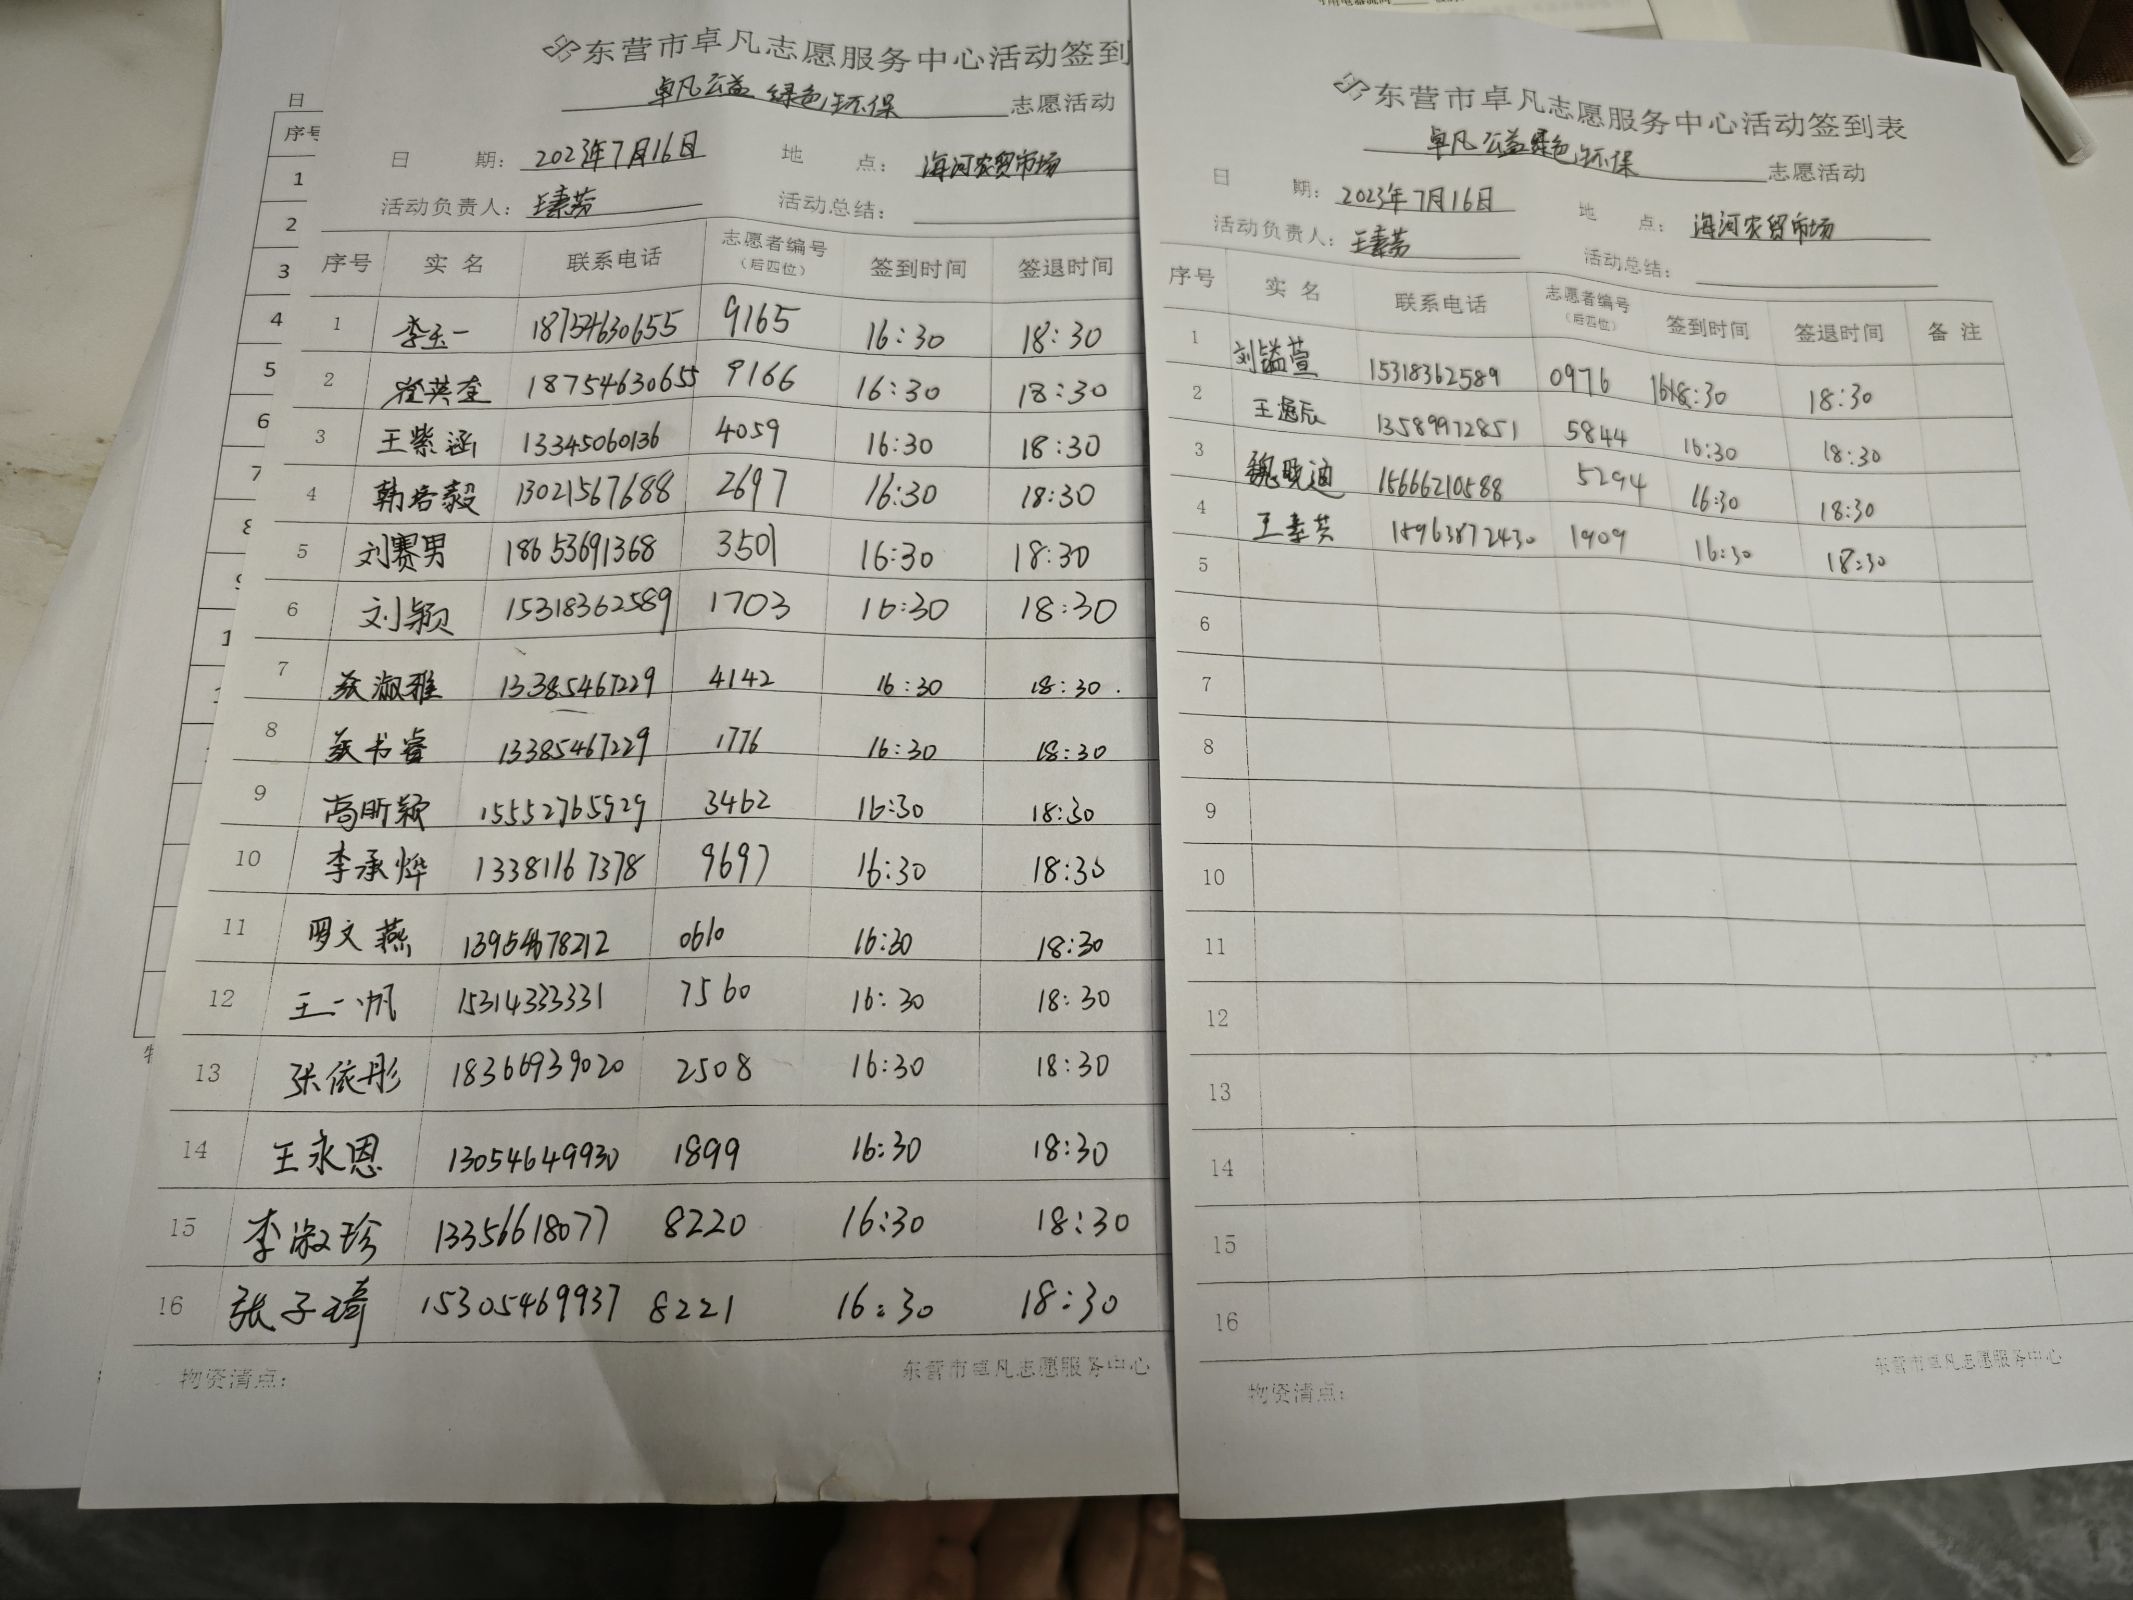 东营市卓凡志愿服务中心活动签到
卓凡公益 绿色环保 志愿活动
日 期: 2023年7月16日 地 点: 海河农贸市场
活动负责人: 王素芬 活动总结:
序号 实 名 联系电话 志愿者编号 (后四位) 签到时间 签退时间
1 李玉一 18754630655 9165 16:30 18:30
2 英奎 18754630655 9166 16:30 18:30
3 王紫涵 13345060136 4059 16:30 18:30
4 韩培毅 13021567688 2697 16:30 18:30
5 刘赛男 18653691368 3501 16:30 18:30
6 刘颖 15318362589 1703 16:30 18:30
7 淑雅 13385467229 4142 16:30 18:30
8 书睿 13385467229 1776 16:30 18:30
9 高昕颖 15552765929 3462 16:30 18:30
10 李承烨 13381167378 9697 16:30 18:30
11 罗文燕 0610 16:30 18:30
12 王一帆 15314333331 7560 16:30 18:30
13 张依彤 18366939020 2508 16:30 18:30
14 王永恩 13054649930 1899 16:30 18:30
15 李淑珍 13356618077 8220 16:30 18:30
16 张子琦 15305469937 8221 16:30 18:30
物资清点: 东营市卓凡志愿服务中心
东营市卓凡志愿服务中心活动签到表
卓凡公益绿色环保 志愿活动
日 期: 2023年7月16日 地 点: 海河农贸市场
活动负责人: 王素芬 活动总结:
序号 实 名 联系电话 志愿者编号 (后四位) 签到时间 签退时间 备 注
1 刘镒萱 15318362589 0976 18:30
2 王逸辰 13589972851 5844 16:30 18:30
3 魏晓迪 15666210588 5294 16:30 18:30
4 王素芬 15963872430 1909 16:30 18:30
5
6
7
8
9
10
11
12
13
14
15
16
物资清点: 东营市卓凡志愿服务中心
日
序号
1
2
3
4
5
6
7
8